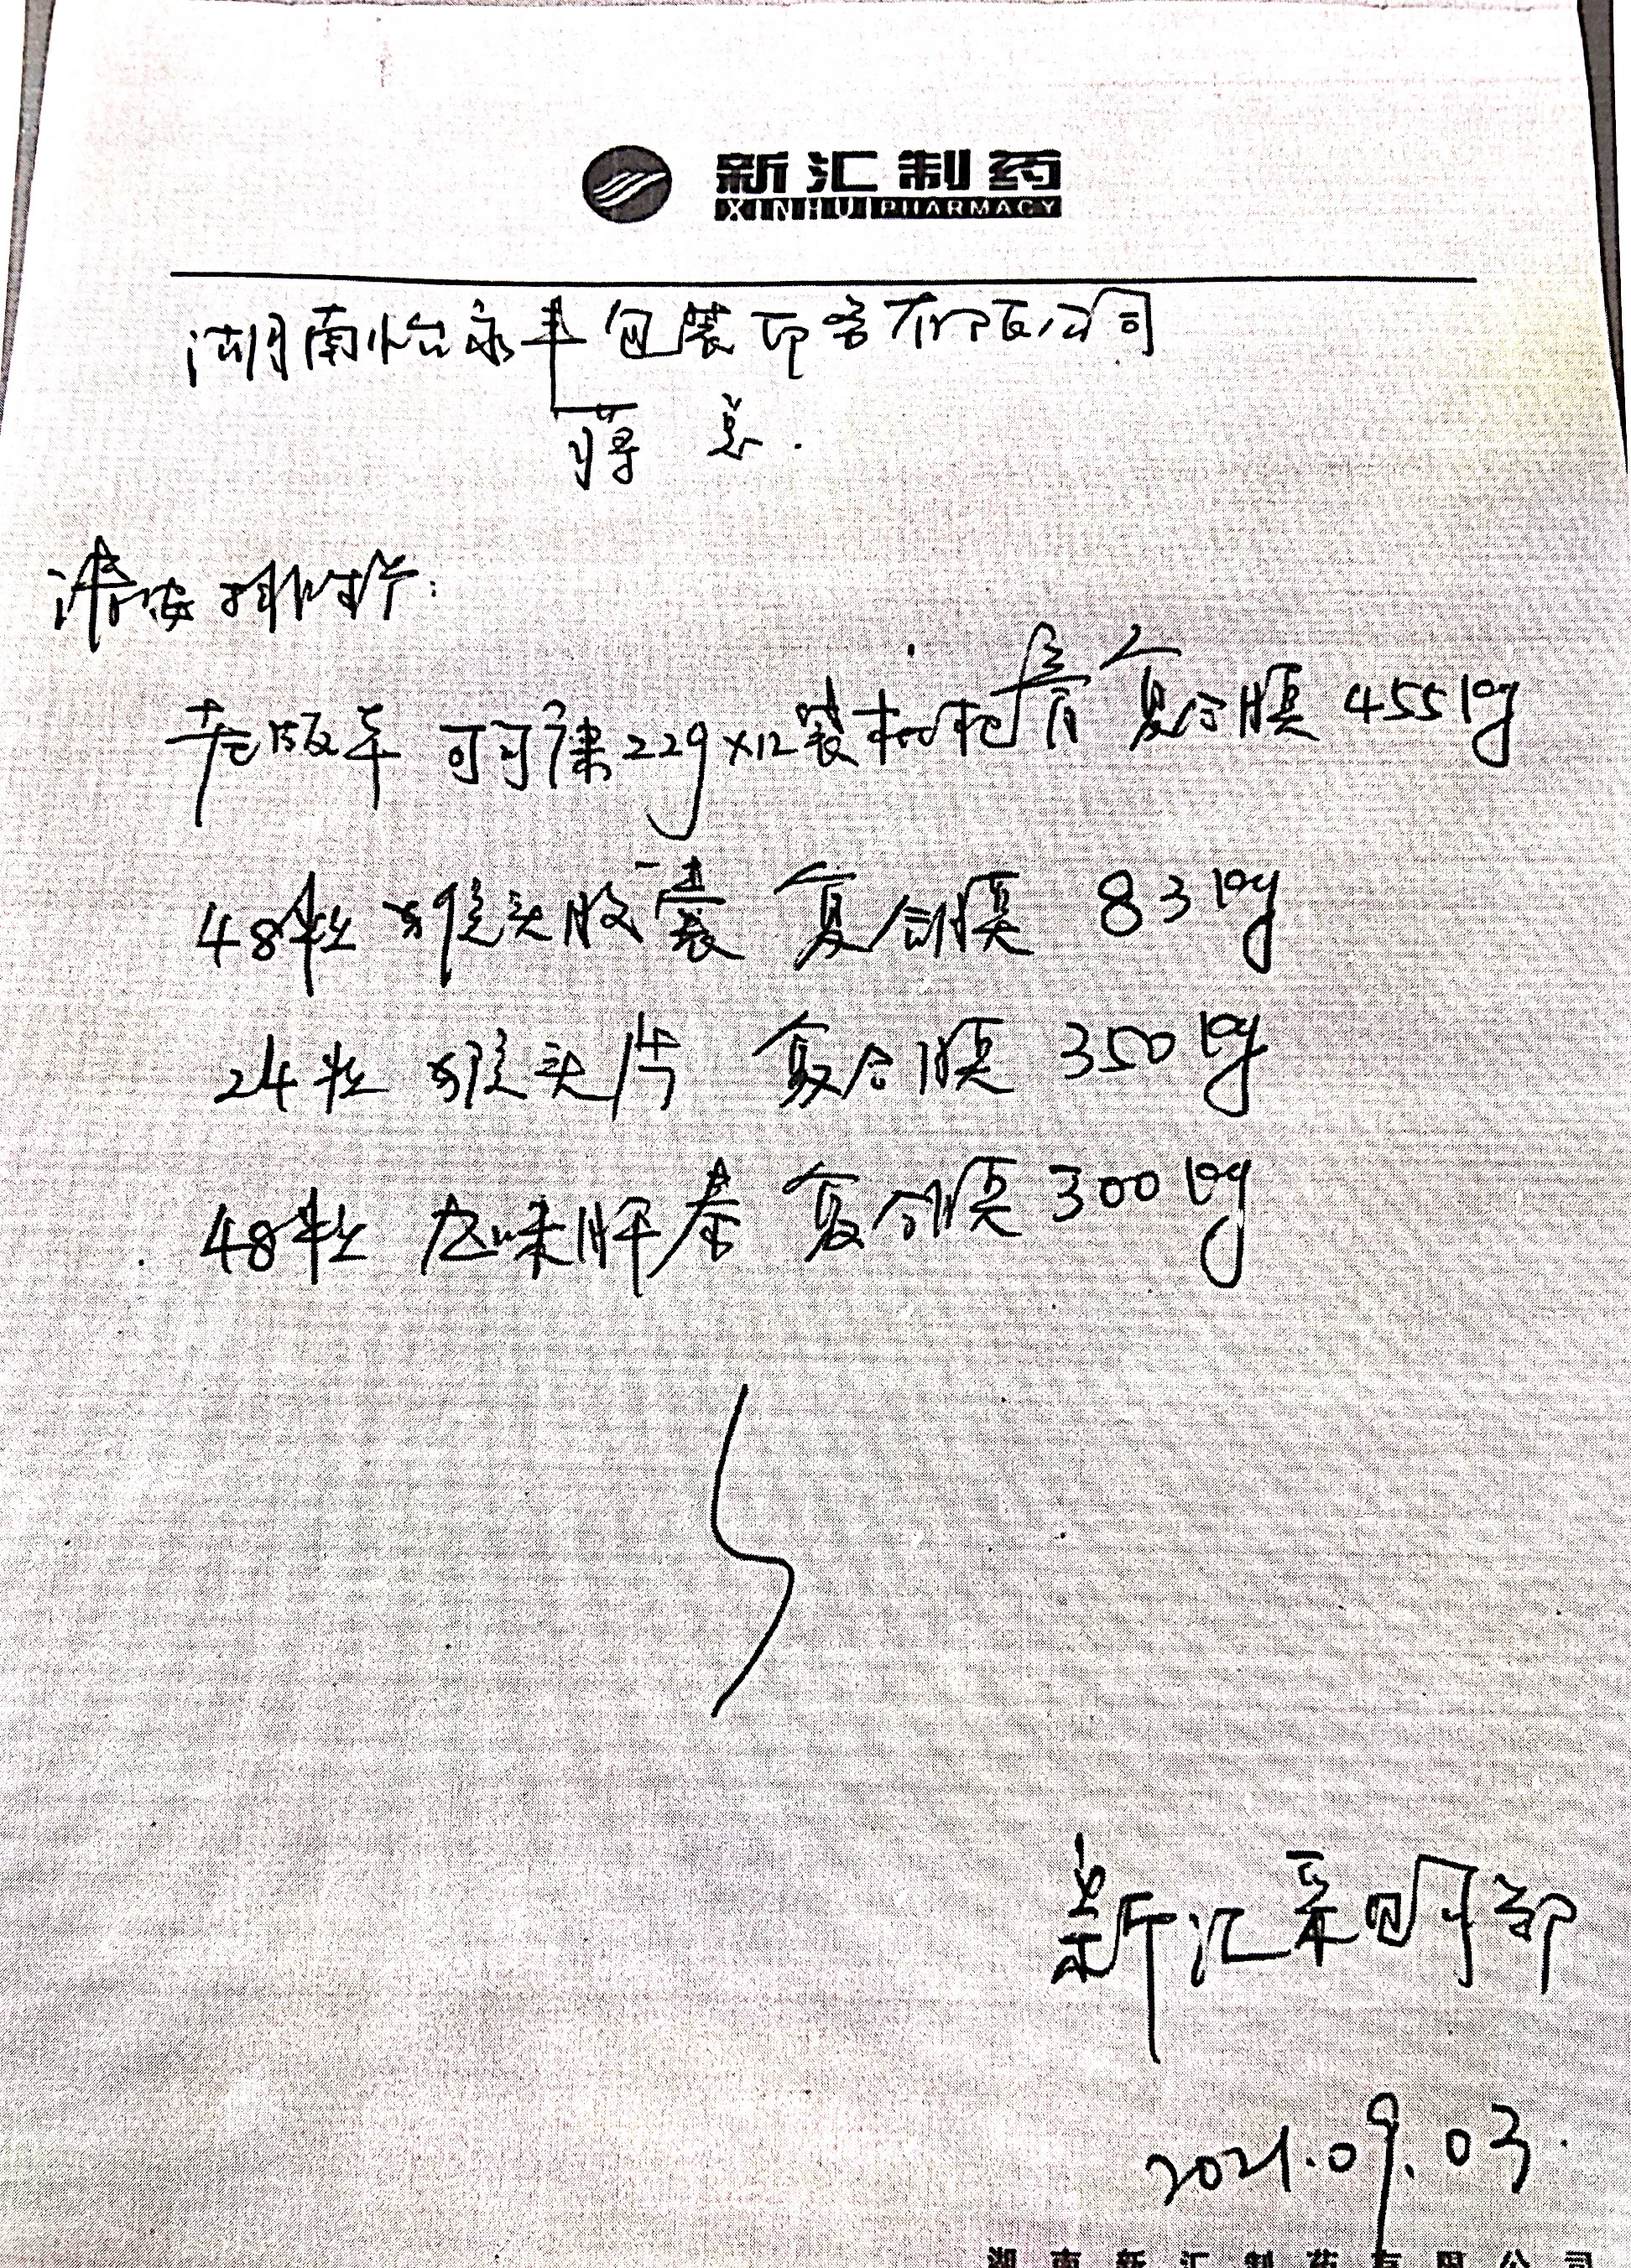 新汇制药
XINHUI PHARMACY
湖南怡永丰包装印务有限公司
蒋总.
请安排生产:
老版本 可可康22g×12袋枇杷膏复合膜 455kg
48粒 猴头胶囊 复合膜 83kg
24粒 猴头片 复合膜 350kg
48粒 九味肝泰 复合膜 300kg
新汇采购部
2021.09.03.
湖南新汇制药有限公司